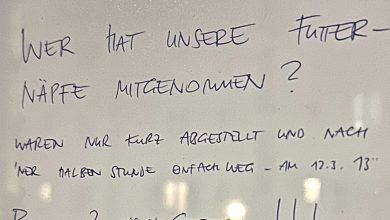 WER HAT UNSERE FUTTER-
NÄPFE MITGENOMMEN?
WAREN NUR KURZ ABGESTELLT UND NACH
'NER HALBEN STUNDE EINFACH WEG - AM 12.3. 13°°